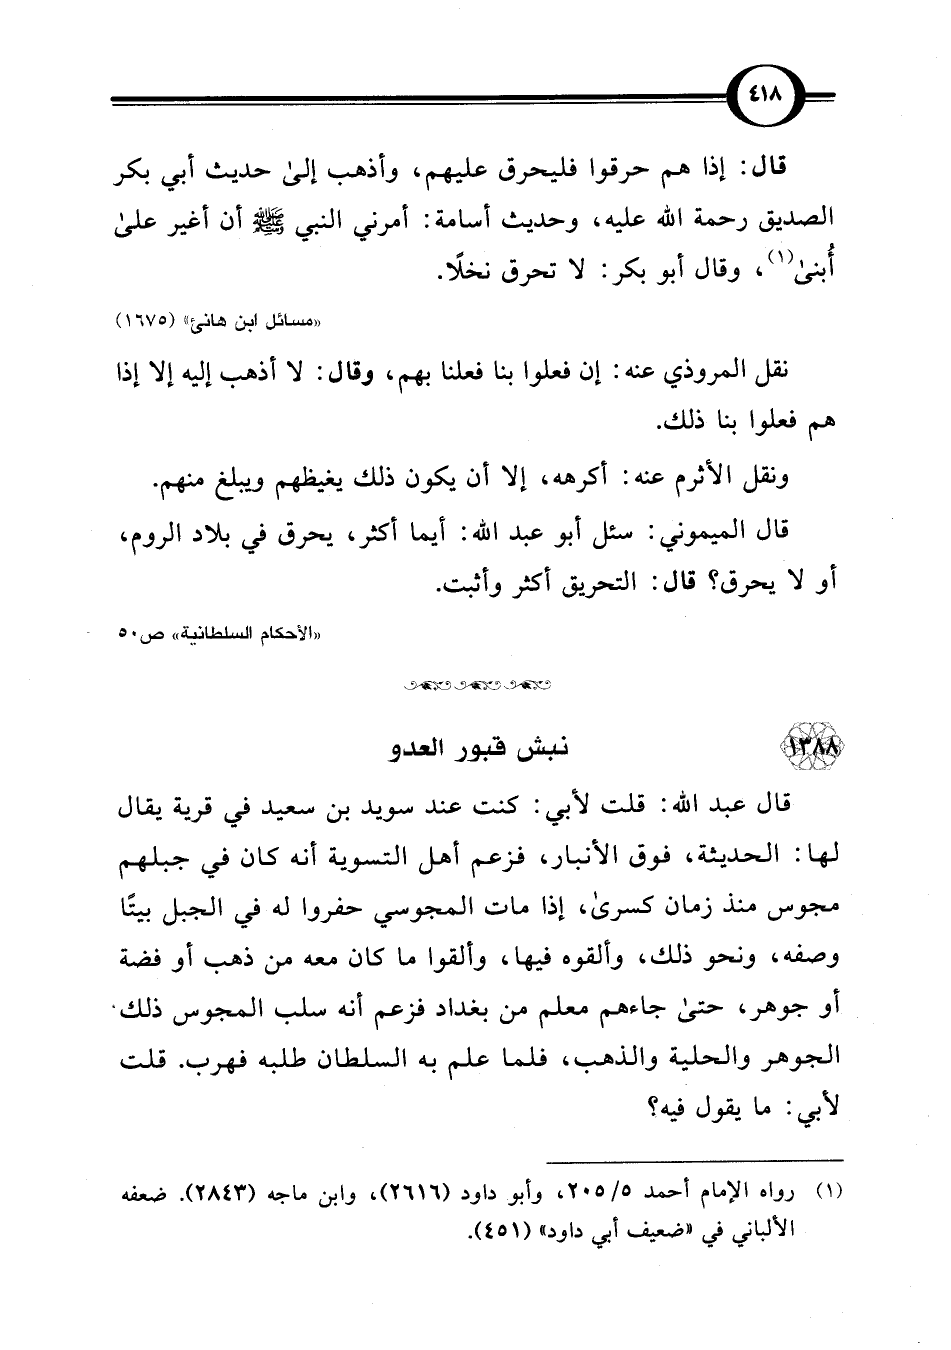 ٤١٨
قال: إذا هم حرقوا فليحرق عليهم، وأذهب إلىٰ حديث أبي بكر
الصديق رحمة الله عليه، وحديث أسامة: أمرني النبي ﷺ أن أغير علىٰ
أُبنىٰ(١)، وقال أبو بكر: لا تحرق نخلًا.
«مسائل ابن هانئ» (١٦٧٥)
نقل المروذي عنه: إن فعلوا بنا فعلنا بهم، وقال: لا أذهب إليه إلا إذا
هم فعلوا بنا ذلك.
ونقل الأثرم عنه: أكرهه، إلا أن يكون ذلك يغيظهم ويبلغ منهم.
قال الميموني: سئل أبو عبد الله: أيما أكثر، يحرق في بلاد الروم،
أو لا يحرق؟ قال: التحريق أكثر وأثبت.
«الأحكام السلطانية» ص٥٠
١٣٨٨ نبش قبور العدو
قال عبد الله: قلت لأبي: كنت عند سويد بن سعيد في قرية يقال
لها: الحديثة، فوق الأنبار، فزعم أهل التسوية أنه كان في جبلهم
مجوس منذ زمان كسرىٰ، إذا مات المجوسي حفروا له في الجبل بيتًا
وصفه، ونحو ذلك، وألقوه فيها، وألقوا ما كان معه من ذهب أو فضة
أو جوهر، حتىٰ جاءهم معلم من بغداد فزعم أنه سلب المجوس ذلك
الجوهر والحلية والذهب، فلما علم به السلطان طلبه فهرب. قلت
لأبي: ما يقول فيه؟
(١) رواه الإمام أحمد ٥/ ٢٠٥، وأبو داود (٢٦١٦)، وابن ماجه (٢٨٤٣). ضعفه
الألباني في «ضعيف أبي داود» (٤٥١).